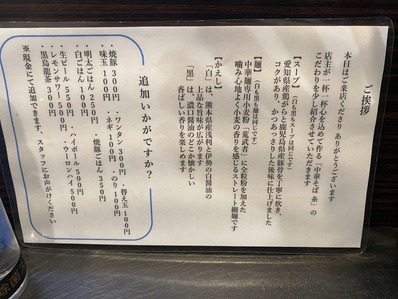 ご挨拶
本日はご来店くださりありがとうございます
店主が一杯一杯心を込めて作る「中華そば 糸」の
こだわりを少し紹介させていただきます
【スープ】(白も黒もスープは同じです)
愛知県産鶏がらと鹿児島県産豚骨を、丁寧に炊き、
コクがあり、かつあっさりした後味に仕上げました
【麺】(白も黒も麺は同じです)
中華麺専用小麦粉「荒武者」に全粒粉を加えた
噛み心地よく小麦の香りを感じるストレート細麺です
【かえし】
「白」は、熊本県産
上品な旨味が広がります
「黒」は、濃口醤油のどこか懐かしい
香ばしい香りを楽しめます
追加いかがですか?
・焼豚 300円 ・ワンタン 300円 ・替え玉 100円
・味玉 100円 ・ネギ 100円 ・のり 100円
・明太ごはん 250円 ・焼豚ごはん 350円
・白ごはん 100円
・生ビール 550円 ・ハイボール 500円
・レモンサワー 550円 ・ウーロンハイ 500円
・黒烏龍茶 300円
※現金にて追加できます。スタッフにお声がけください